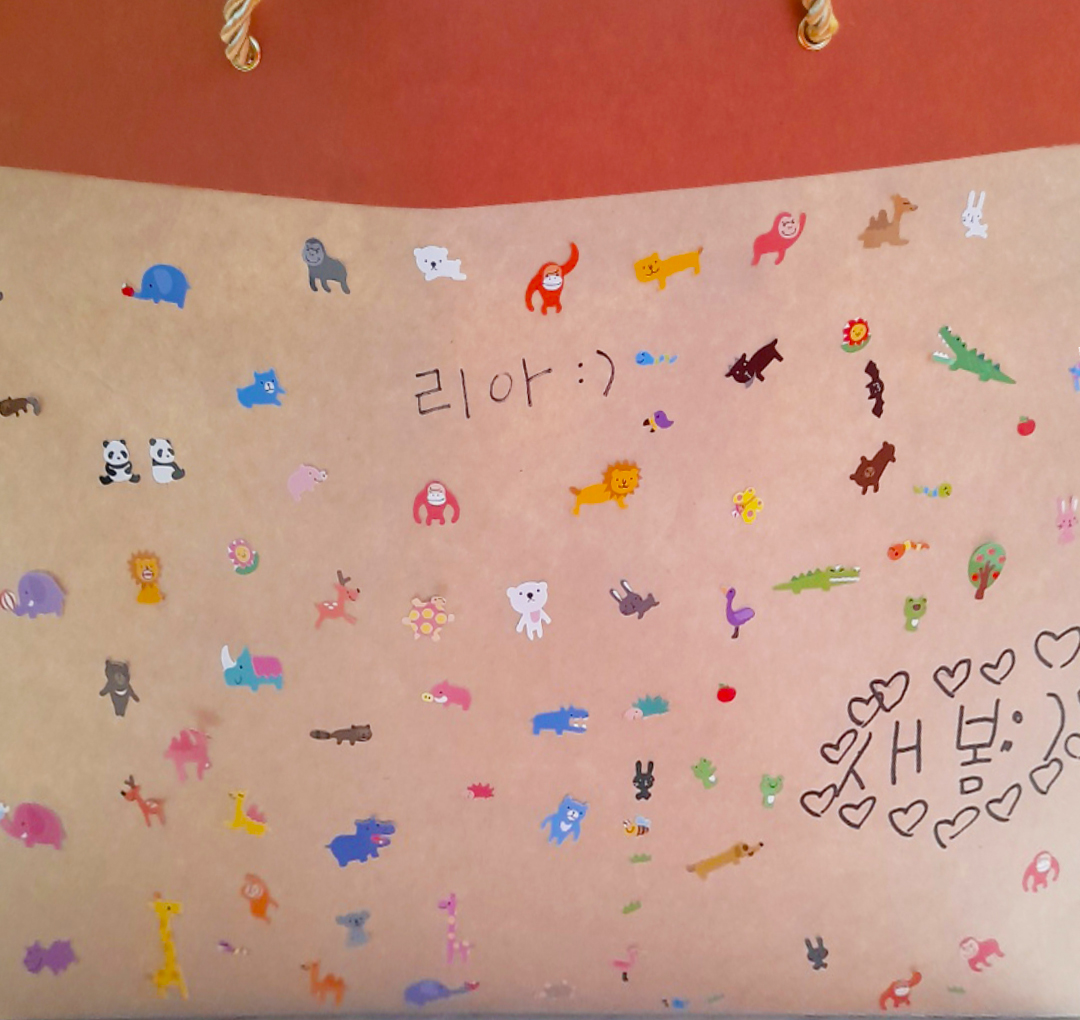 리아 :)
새봄:)